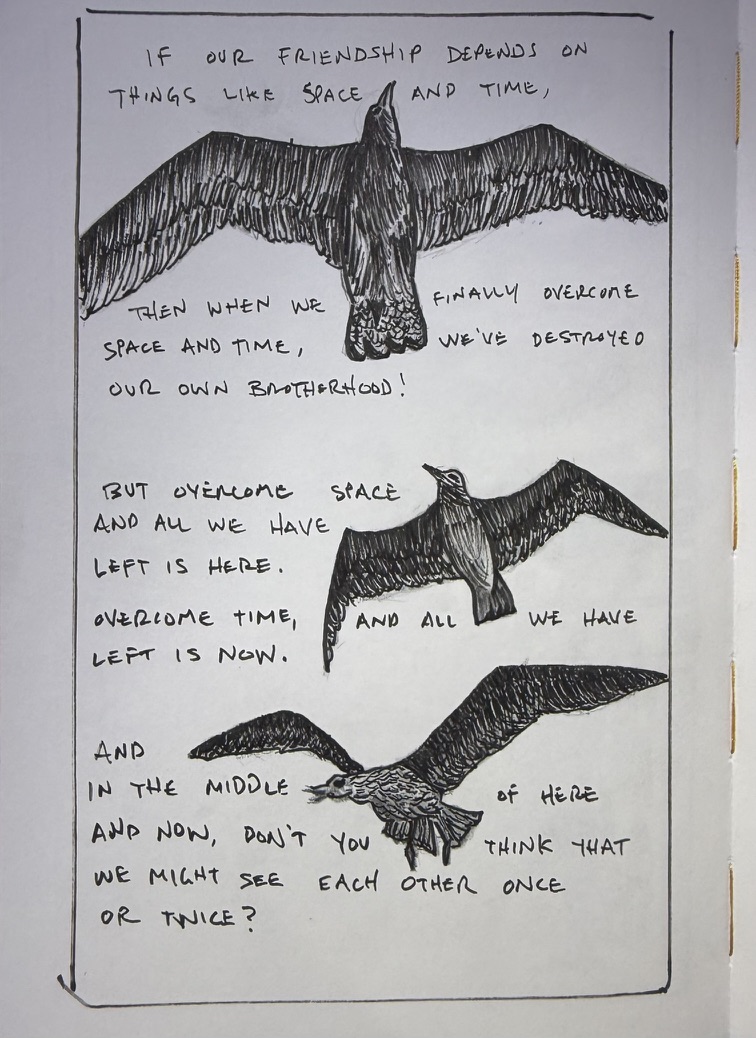 IF OUR FRIENDSHIP DEPENDS ON
THINGS LIKE SPACE AND TIME,
THEN WHEN WE FINALLY OVERCOME
SPACE AND TIME, WE'VE DESTROYED
OUR OWN BROTHERHOOD!
BUT OVERCOME SPACE
AND ALL WE HAVE
LEFT IS HERE.
OVERCOME TIME, AND ALL WE HAVE
LEFT IS NOW.
AND
IN THE MIDDLE OF HERE
AND NOW, DON'T YOU THINK THAT
WE MIGHT SEE EACH OTHER ONCE
OR TWICE?